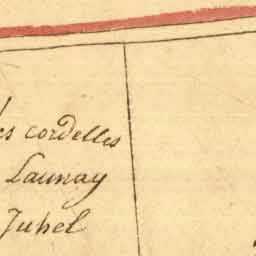 es cordelles
Launay
Juhel